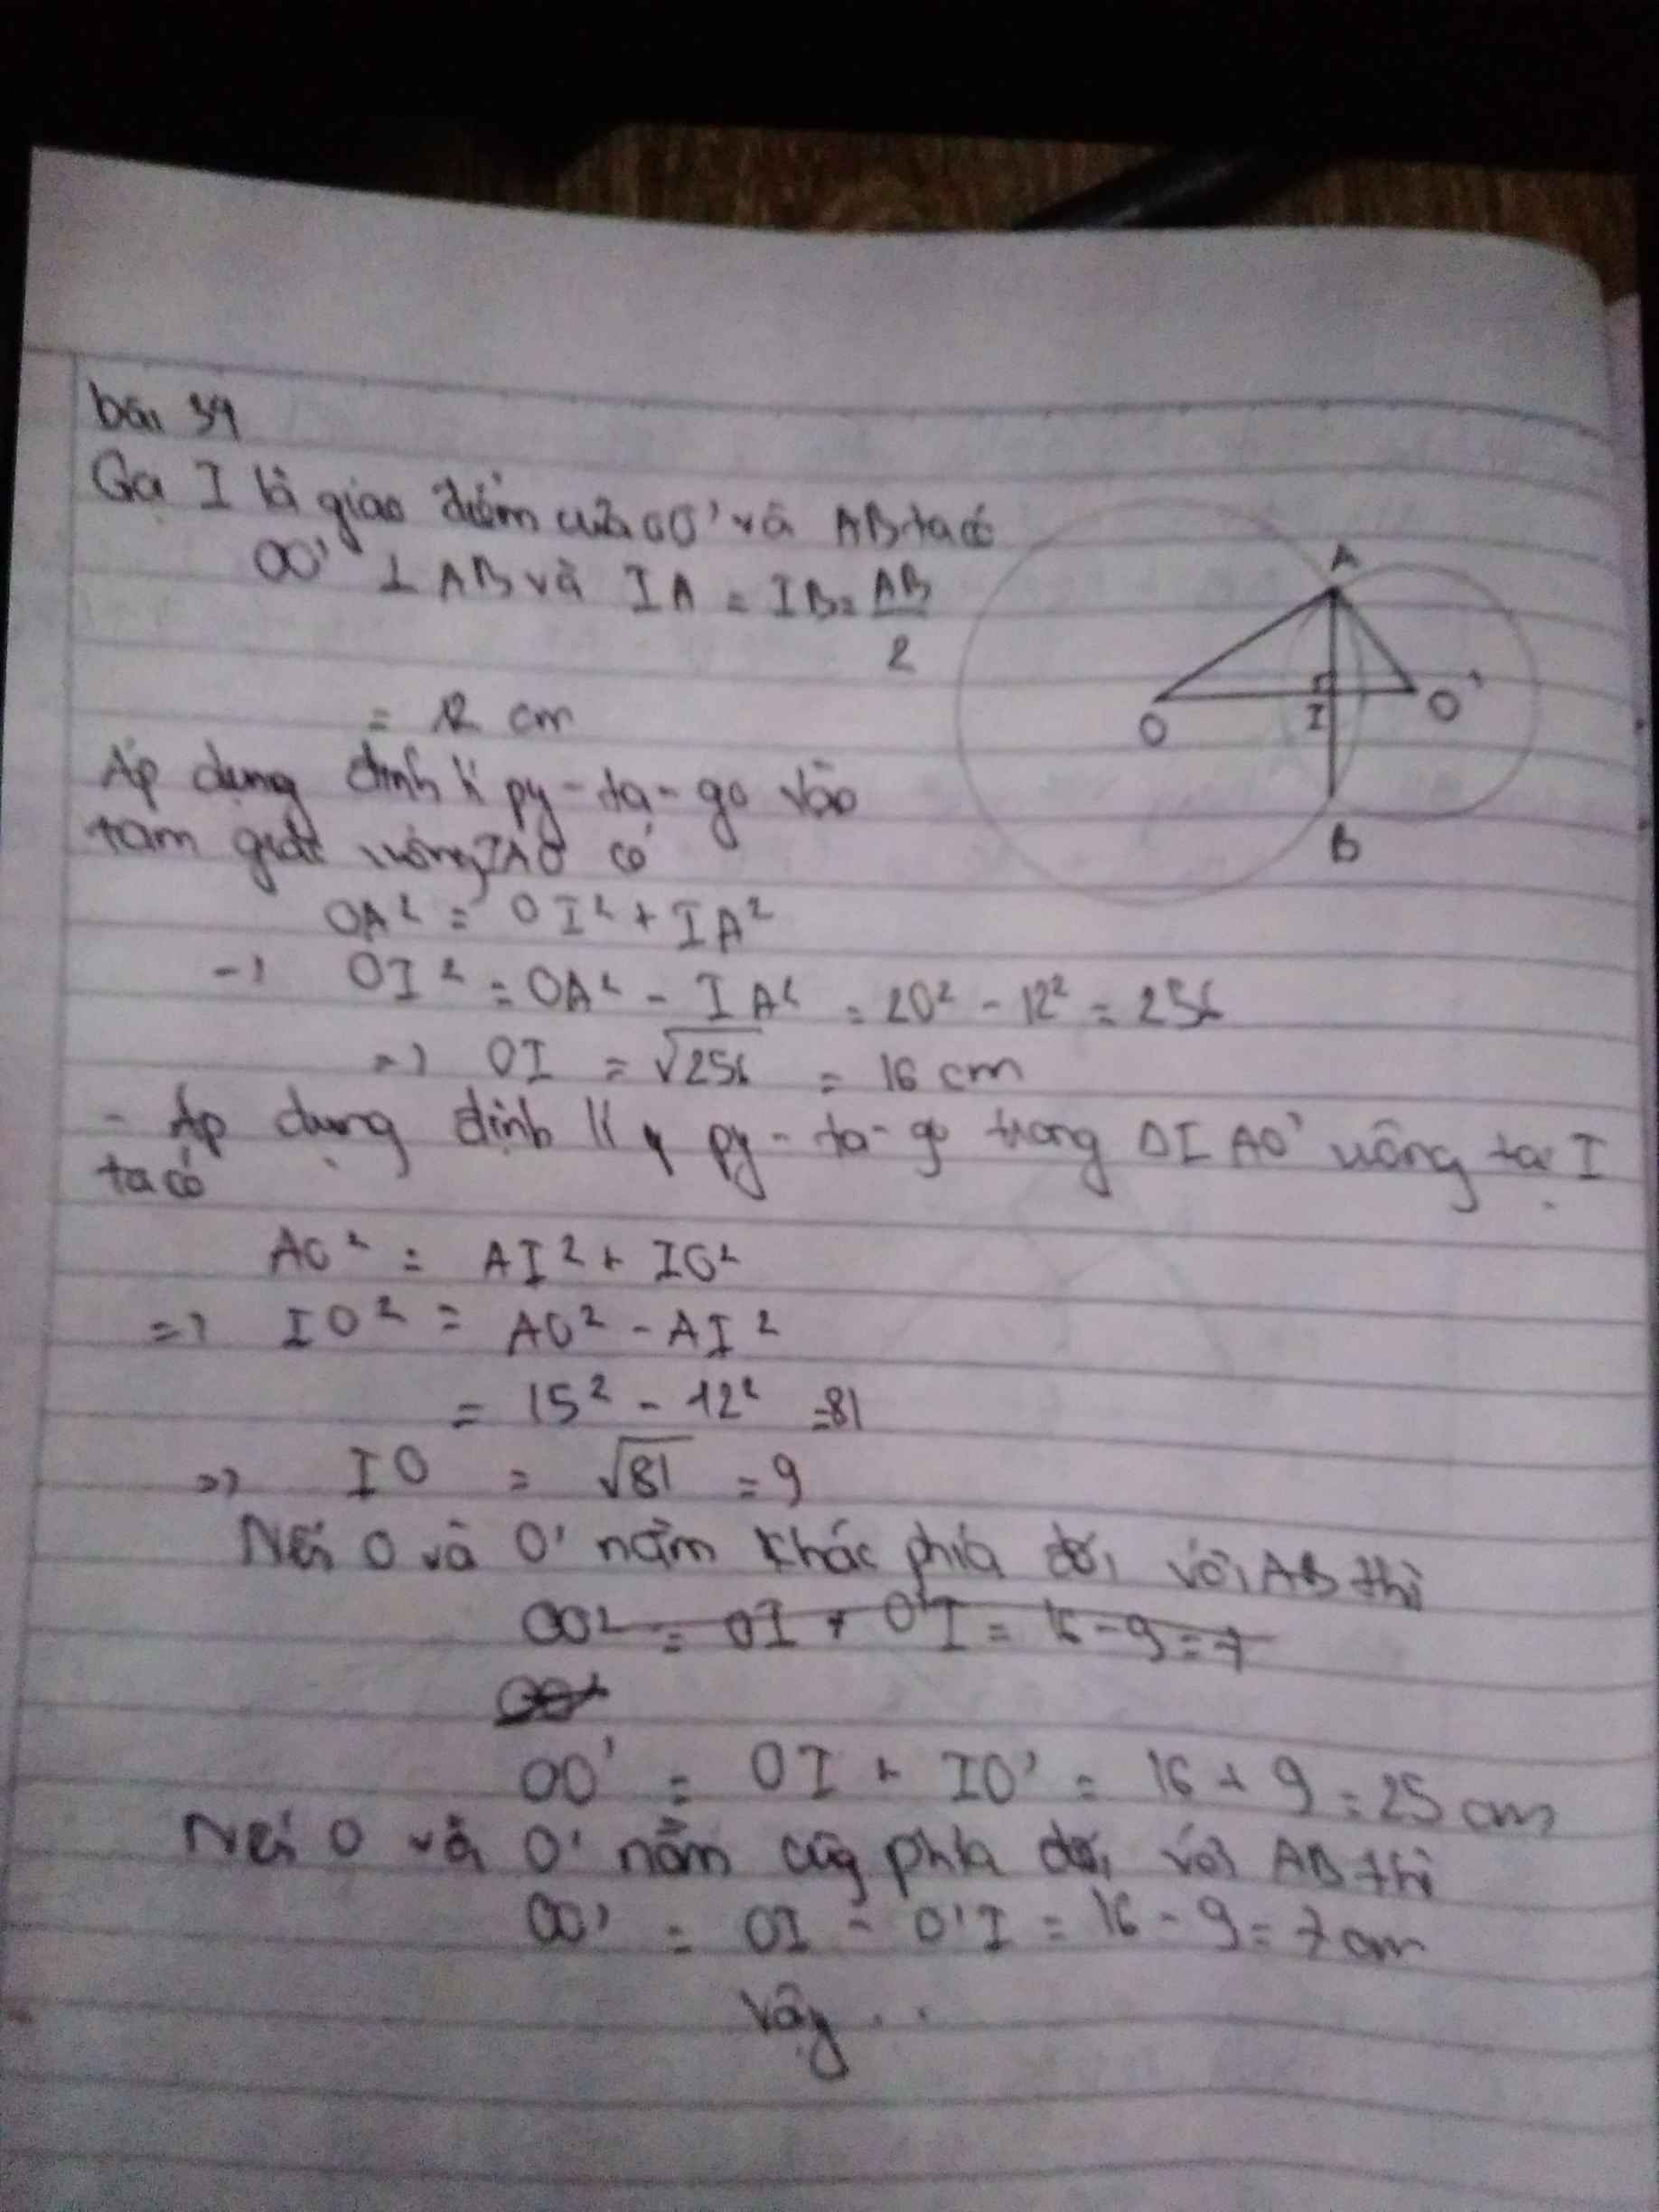 bài 34
Gọi I là giao điểm của OO' và AB ta có
OO' ⊥ AB và IA = IB = AB/2
= 12 cm
Áp dụng định lí py-ta-go vào
tam giác vuông IAO có
OA² = OI² + IA²
=> OI² = OA² - IA² = 20² - 12² = 256
=> OI = √256 = 16 cm
- Áp dụng định lí py-ta-go trong ΔIAO' vuông tại I
ta có
AO² = AI² + IO²
=> IO² = AO² - AI²
= 15² - 12² = 81
=> IO = √81 = 9
Nếu O và O' nằm khác phía đối với AB thì
OO² = OI + O'I = 16 - 9 = 7
OO' = OI + IO' = 16 + 9 = 25 cm
Nếu O và O' nằm cùng phía đối với AB thì
OO' = OI - O'I = 16 - 9 = 7 cm
Vậy ..
A
O
I
O'
B